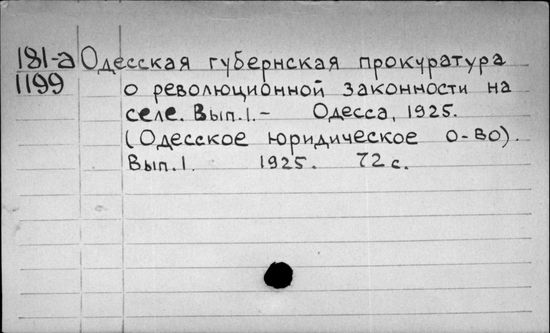 181-а Одесская губернская прокуратура
1199 о революционной законности на
селе. Вып.1.- Одесса, 1925.
(Одесское юридическое о-во).
Вып.1. 1925. 72 с.